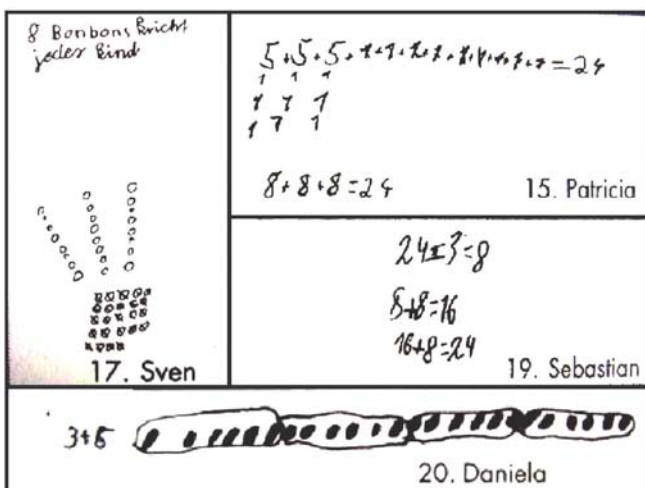 8 Bonbons kricht
jeder Kind
17. Sven
5+5+5+1+1+1+1+1+1+1+1+1=24
1 1 1
1 1 1
1 1 1
8+8+8=24
15. Patricia
24:3=8
8+8=16
16+8=24
19. Sebastian
20. Daniela